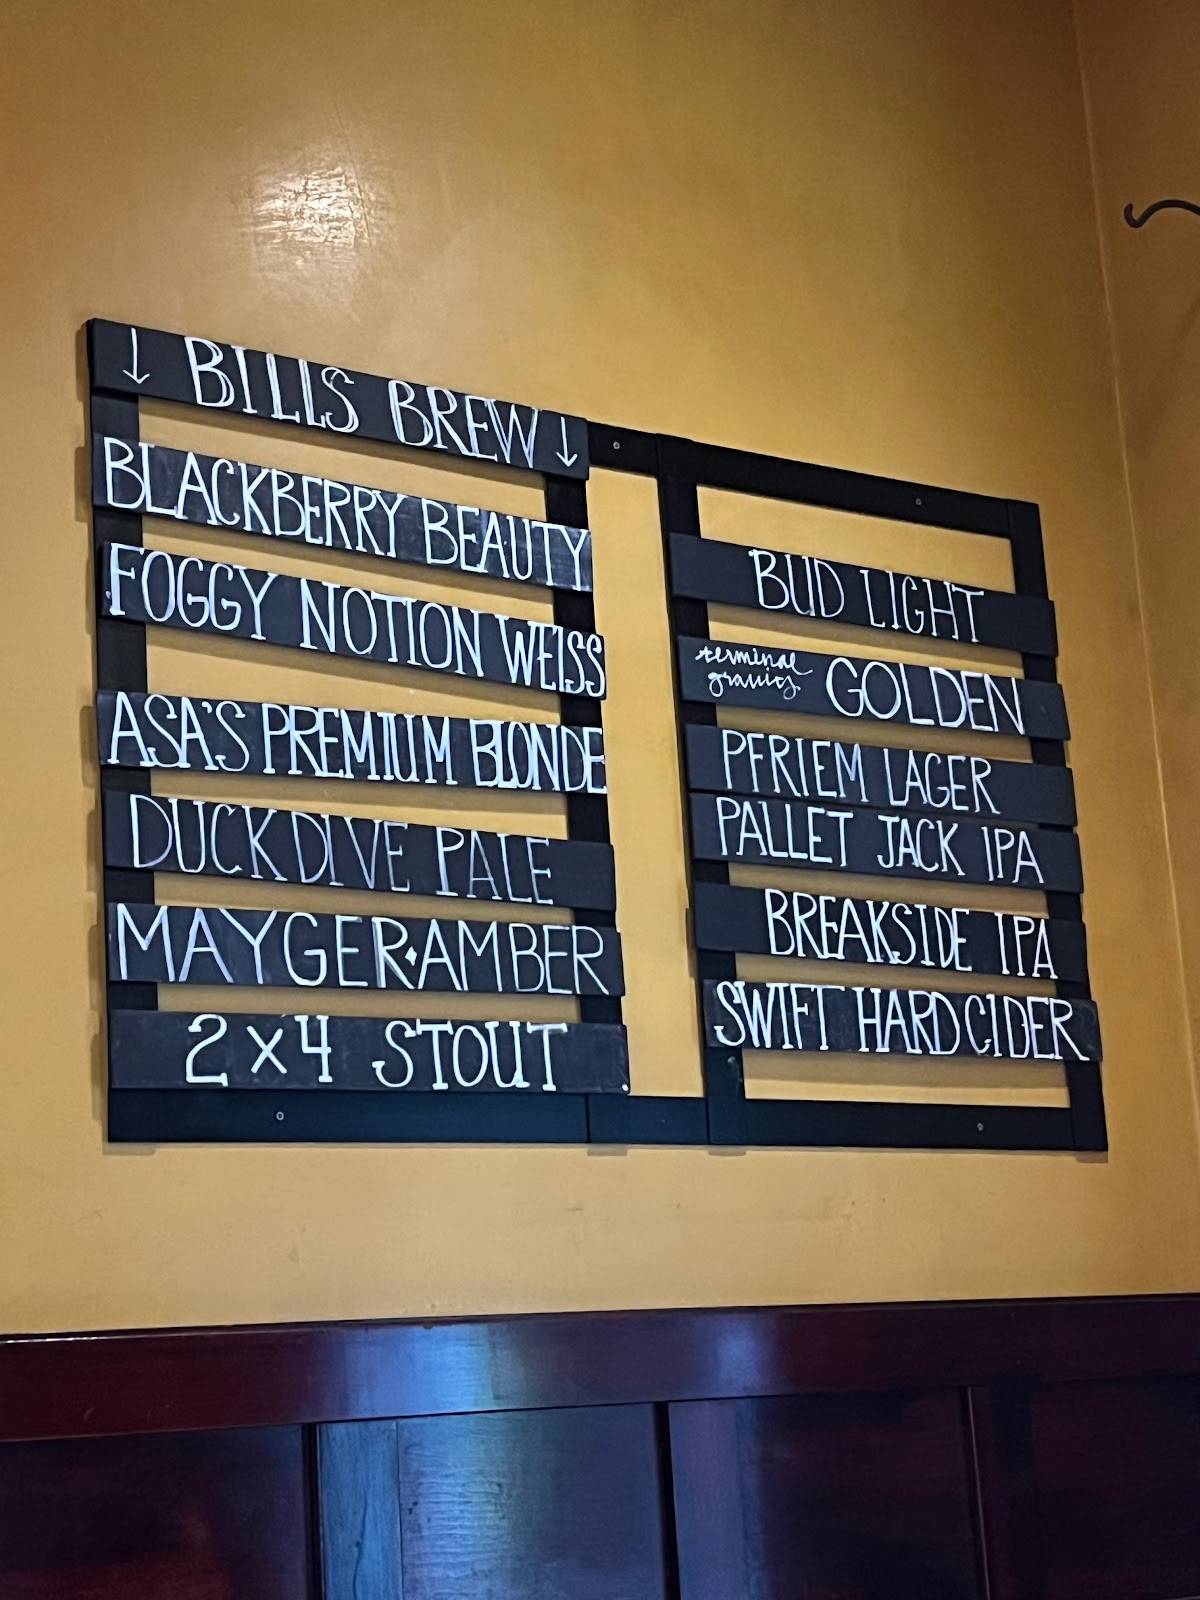 ↓ BILLS BREW ↓
BLACKBERRY BEAUTY
FOGGY NOTION WEISS
ASA'S PREMIUM BLONDE
DUCK DIVE PALE
MAYGER•AMBER
2x4 STOUT
BUD LIGHT
terminal
gravity
GOLDEN
PFRIEM LAGER
PALLET JACK IPA
BREAKSIDE IPA
SWIFT HARD CIDER